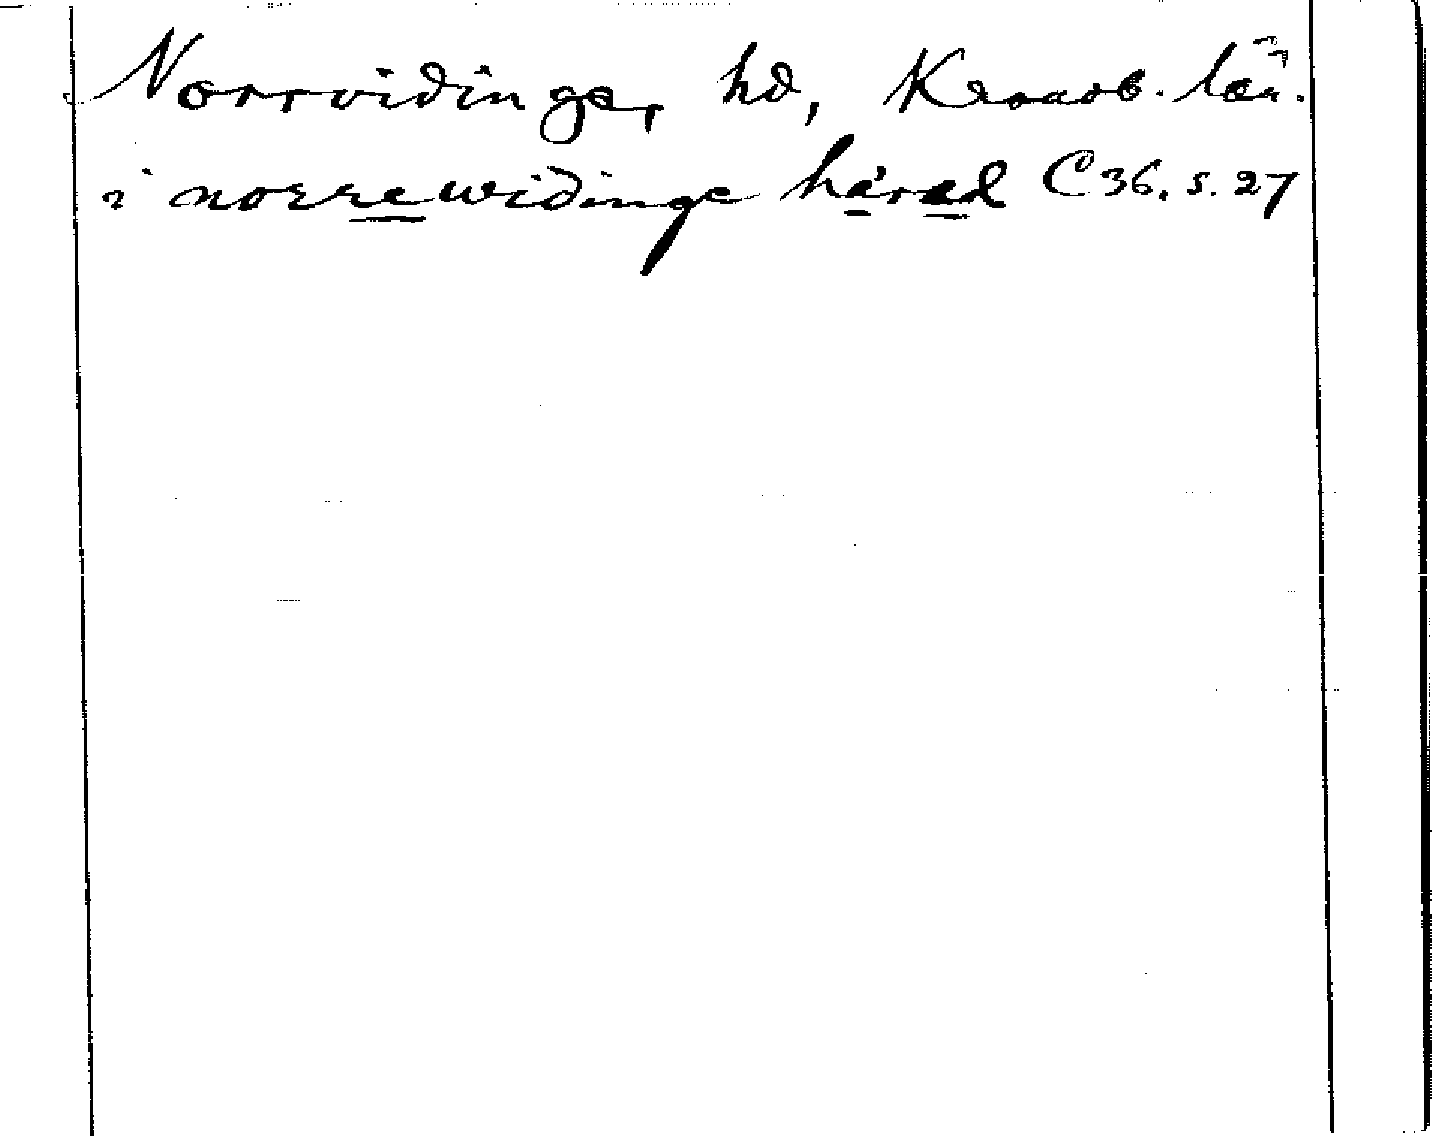 Norrvidinge, hd, Kronob. län.
i norrewidinge härad C 36. s. 27